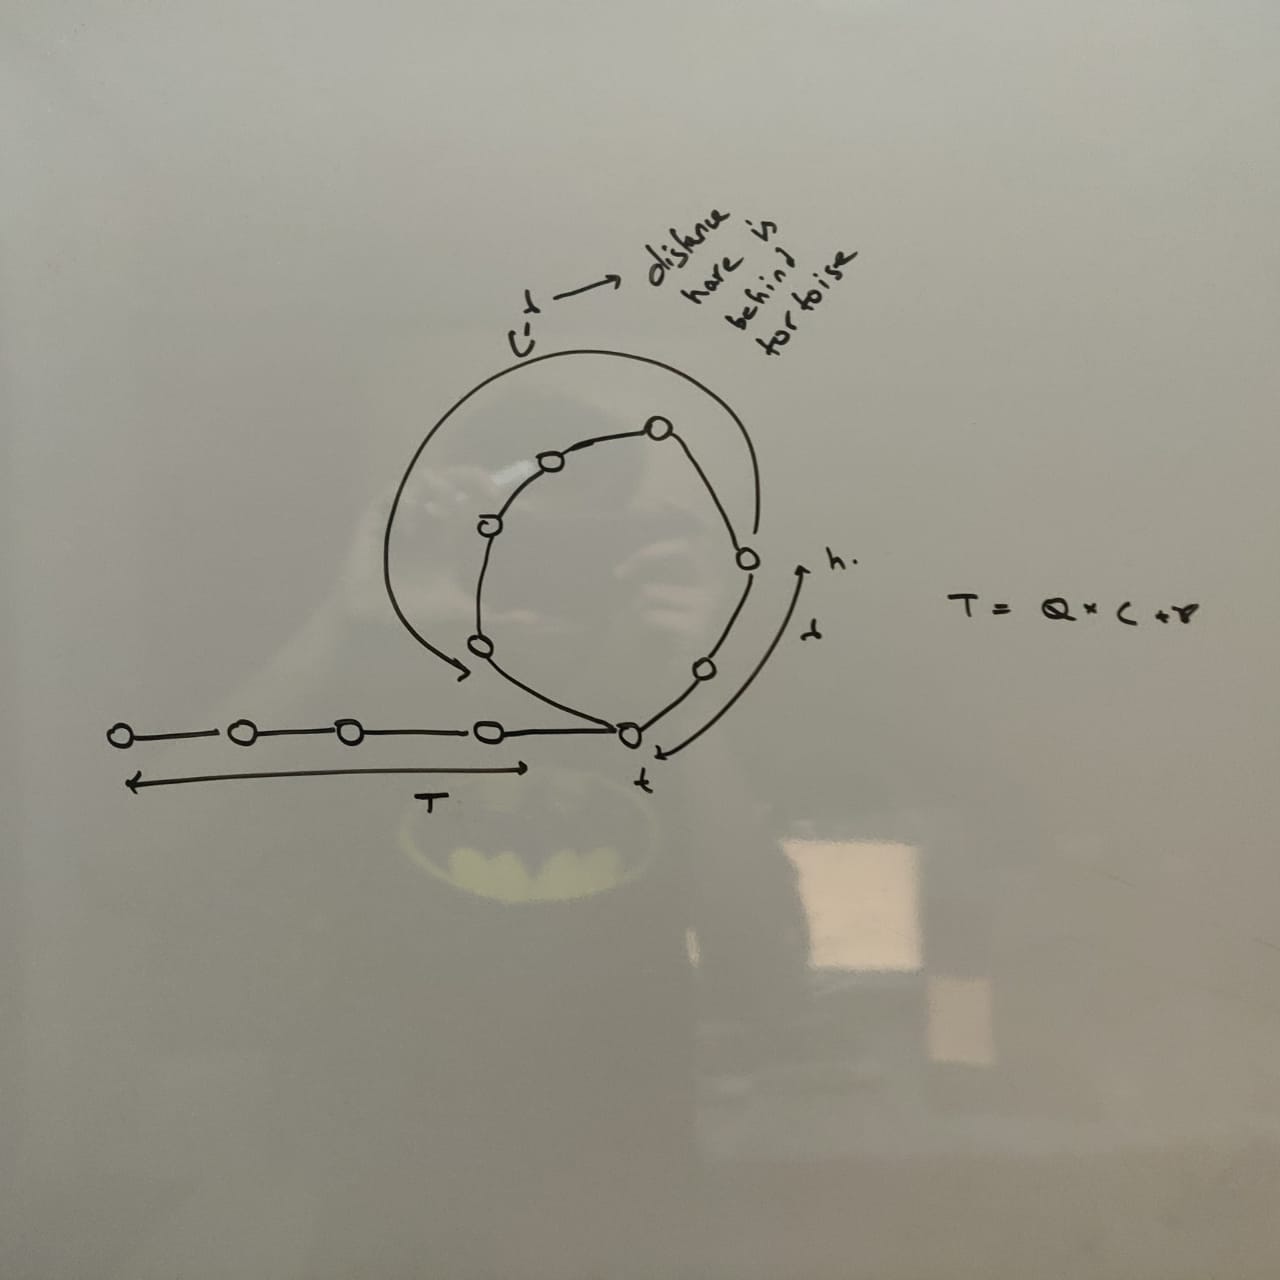 C-r → distance
hare is
behind
tortoise
h.
r
T = Q × C + r
T
t